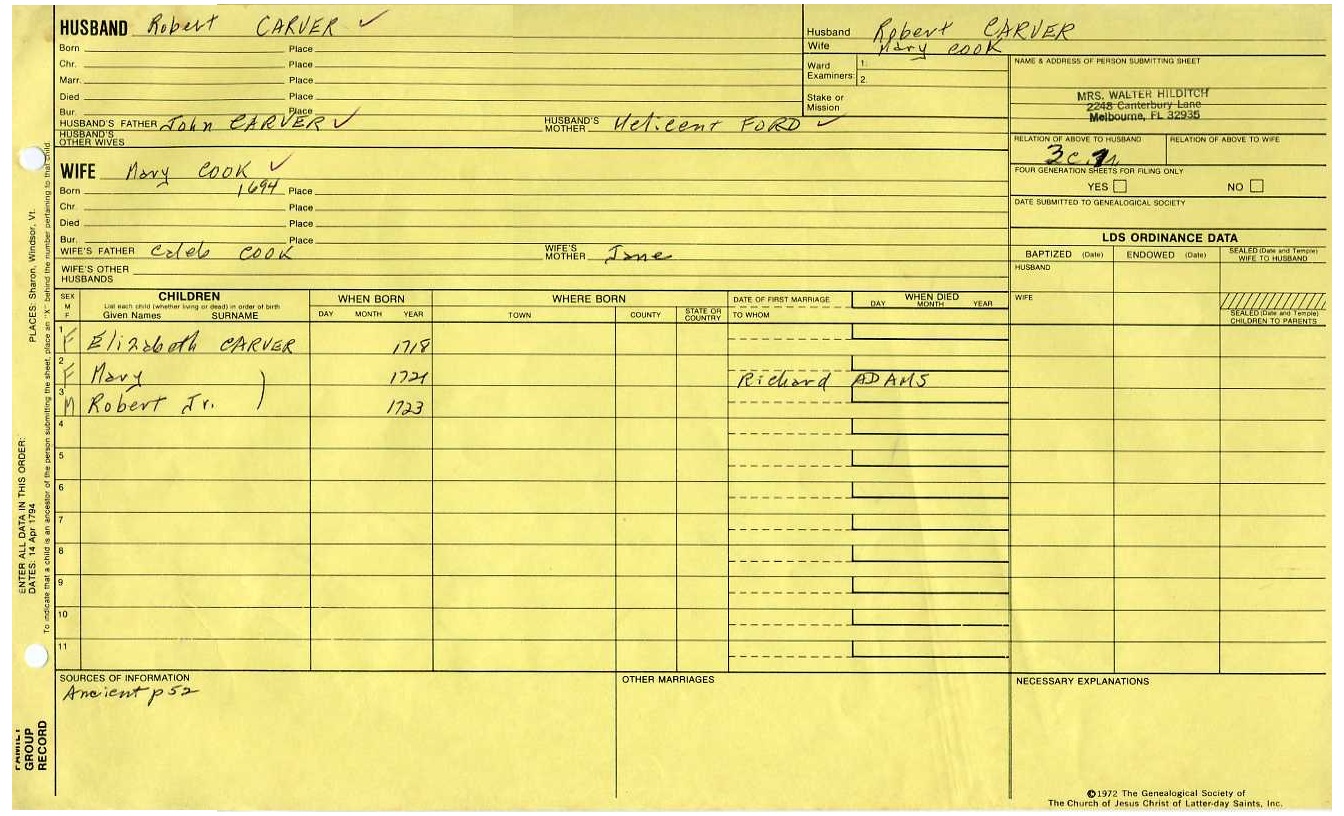 HUSBAND Robert CARVER ✓
Born Place
Chr. Place
Marr. Place
Died Place
Bur. Place
HUSBAND'S FATHER John CARVER ✓ HUSBAND'S MOTHER Melicent FORD ✓
HUSBAND'S OTHER WIVES
Husband Robert CARVER
Wife Mary COOK
Ward Examiners: 1.
2.
Stake or Mission
NAME & ADDRESS OF PERSON SUBMITTING SHEET
MRS. WALTER HILDITCH
2248 Canterbury Lane
Melbourne, FL 32935
RELATION OF ABOVE TO HUSBAND RELATION OF ABOVE TO WIFE
FOUR GENERATION SHEETS FOR FILING ONLY
YES NO
DATE SUBMITTED TO GENEALOGICAL SOCIETY
WIFE Mary COOK ✓
Born 1694 Place
Chr. Place
Died Place
Bur. Place
WIFE'S FATHER Caleb COOK WIFE'S MOTHER Jane
WIFE'S OTHER HUSBANDS
LDS ORDINANCE DATA
BAPTIZED (Date) ENDOWED (Date) SEALED (Date and Temple) WIFE TO HUSBAND
HUSBAND
WIFE
SEALED (Date and Temple) CHILDREN TO PARENTS
SEX M F CHILDREN WHEN BORN WHERE BORN DATE OF FIRST MARRIAGE WHEN DIED
List each child (whether living or dead) in order of birth
Given Names SURNAME DAY MONTH YEAR TOWN COUNTY STATE OR COUNTRY TO WHOM DAY MONTH YEAR
1 F Elizabeth CARVER 1718
2 F Mary 1721 Richard ADAMS
3 M Robert Jr. 1723
4
5
6
7
8
9
10
11
SOURCES OF INFORMATION
Ancient p 52
OTHER MARRIAGES
NECESSARY EXPLANATIONS
©1972 The Genealogical Society of
The Church of Jesus Christ of Latter-day Saints, Inc.
FAMILY GROUP RECORD
ENTER ALL DATA IN THIS ORDER:
DATES: 14 Apr 1794 PLACES: Sharon, Windsor, Vt.
To indicate that a child is an ancestor of the person submitting the sheet, place an "X" behind the number pertaining to that child